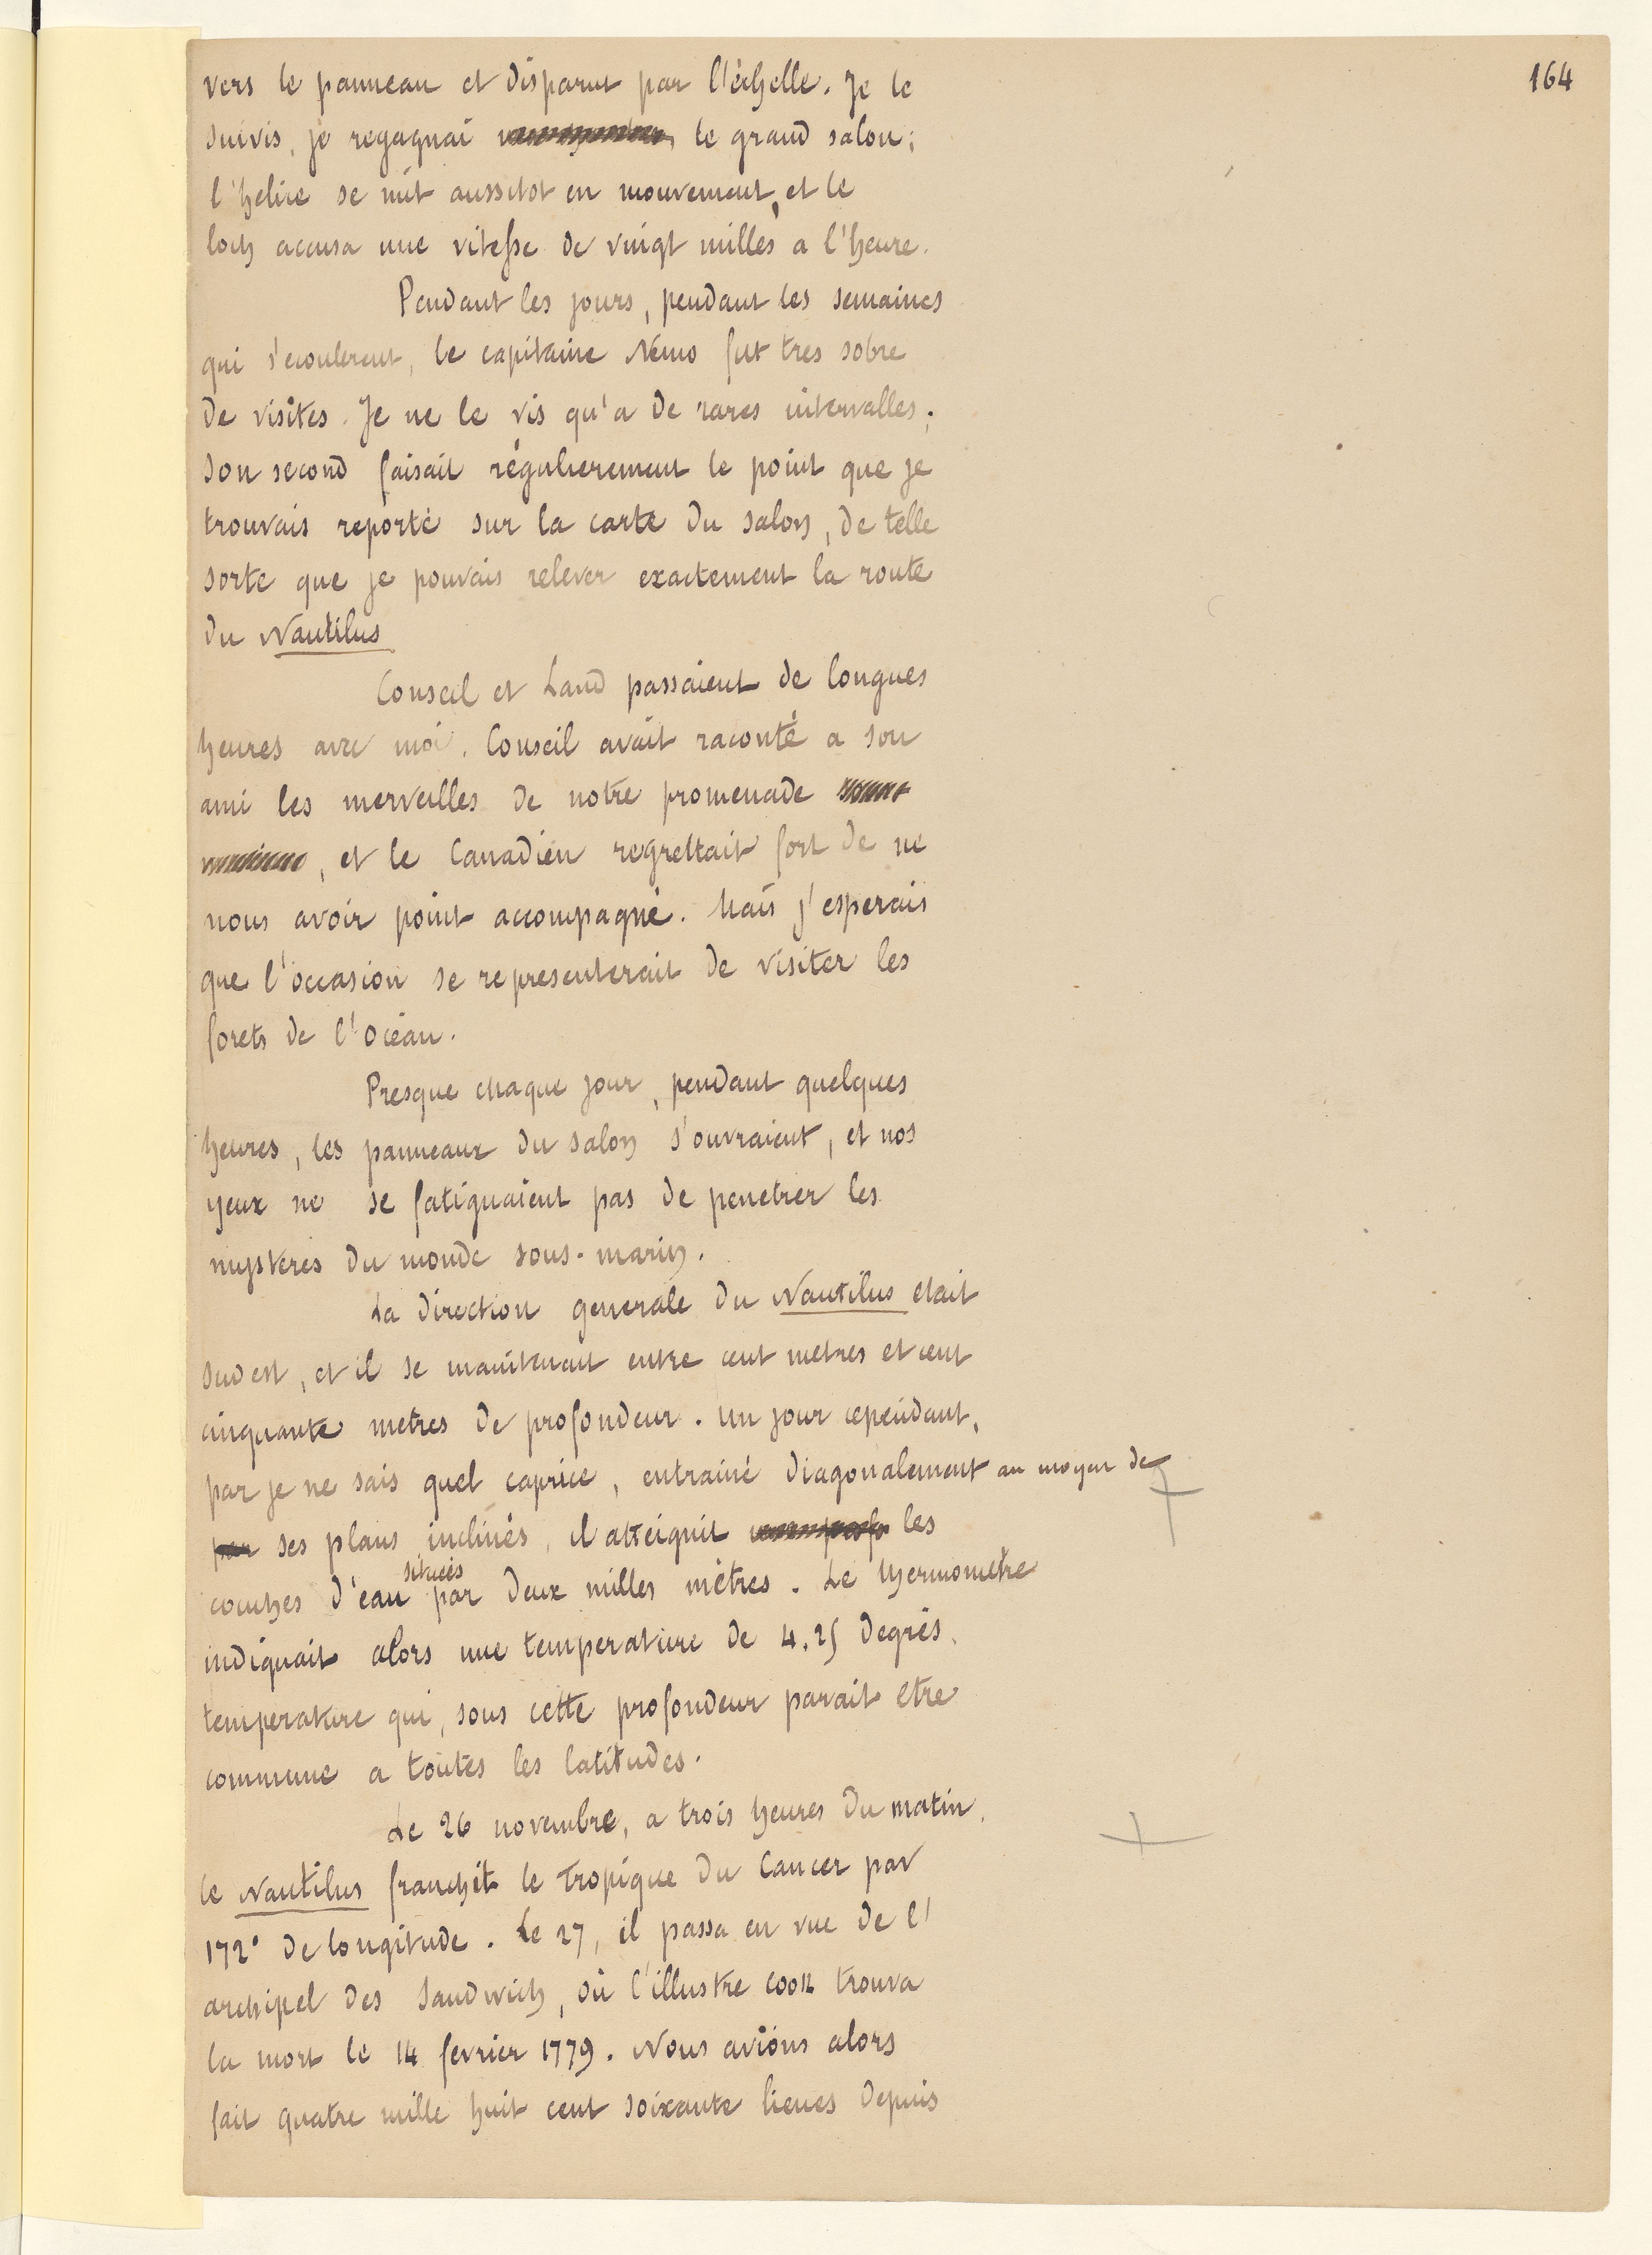 164
vers le panneau et disparut par l'échelle. Je le
suivis, je regagnai le grand salon;
l'helice se mit aussitot en mouvement, et le
loch accusa une vitesse de vingt milles a l'heure.
Pendant les jours, pendant les semaines
qui s'ecoulerent, le capitaine Nemo fut tres sobre
de visites. Je ne le vis qu'a de rares intervalles;
son second faisait régulierement le point que je
trouvais reporté sur la carte du salon, de telle
sorte que je pouvais relever exactement la route
du Nautilus
Conseil et Land passaient de longues
heures avec moi. Conseil avait raconté a son
ami les merveilles de notre promenade
, et le Canadien regrettait fort de ne
nous avoir point accompagné. Mais j'esperais
que l'occasion se representerait de visiter les
forets de l'Océan.
Presque chaque jour, pendant quelques
heures, les panneaux du salon s'ouvraient, et nos
yeux ne se fatiguaient pas de penetrer les
mysteres du monde sous-marin.
La direction generale du Nautilus etait
sud est, et il se maintenait entre cent metres et cent
cinquante metres de profondeur. Un jour cependant,
par je ne sais quel caprice, entrainé diagonalement au moyen de
par ses plans inclinés, il atteignit les
situées
couches d'eau par deux milles mètres. Le thermomètre
indiquait alors une temperature de 4.25 degrés,
temperature qui, sous cette profondeur parait etre
commune a toutes les latitudes.
Le 26 novembre, a trois heures du matin,
le Nautilus franchit le Tropique du Cancer par
172° de longitude. Le 27, il passa en vue de l'
archipel des Sandwich, où l'illustre Cook trouva
la mort le 14 fevrier 1779. Nous avions alors
fait quatre mille huit cent soixante lieues depuis